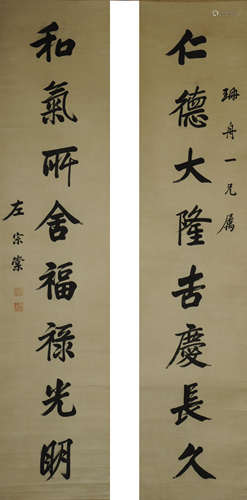 仁德大隆吉慶長久
珊舟一兄属
和氣所舍福祿光明
左宗棠